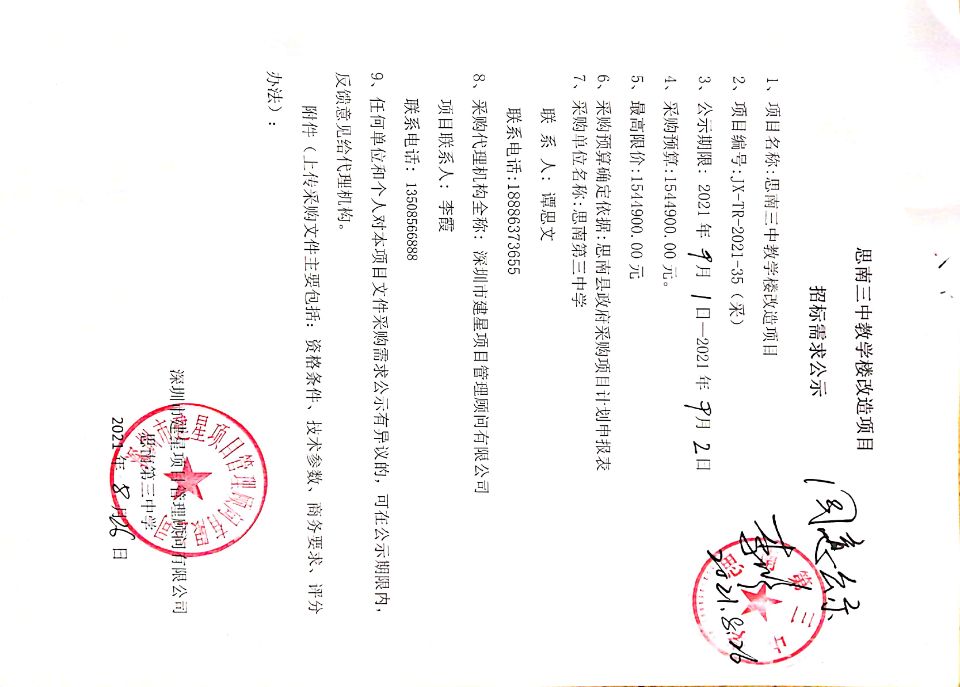 思南三中教学楼改造项目
招标需求公示
同意公示
2021.8.26
1、项目名称:思南三中教学楼改造项目
2、项目编号:JX-TR-2021-35（采）
3、公示期限：2021年9月1日—2021年9月2日
4、采购预算:1544900.00元。
5、最高限价:1544900.00元
6、采购预算确定依据:思南县政府采购项目计划申报表
7、采购单位名称:思南第三中学
联 系 人：谭思文
联系电话:18886373655
8、采购代理机构全称：深圳市建星项目管理顾问有限公司
项目联系人：李霞
联系电话：13508566888
9、任何单位和个人对本项目文件采购需求公示有异议的，可在公示期限内，
反馈意见给代理机构。
附件（上传采购文件主要包括：资格条件、技术参数、商务要求、评分
办法）：
深圳市建星项目管理顾问有限公司
思南第三中学
2021年8月26日